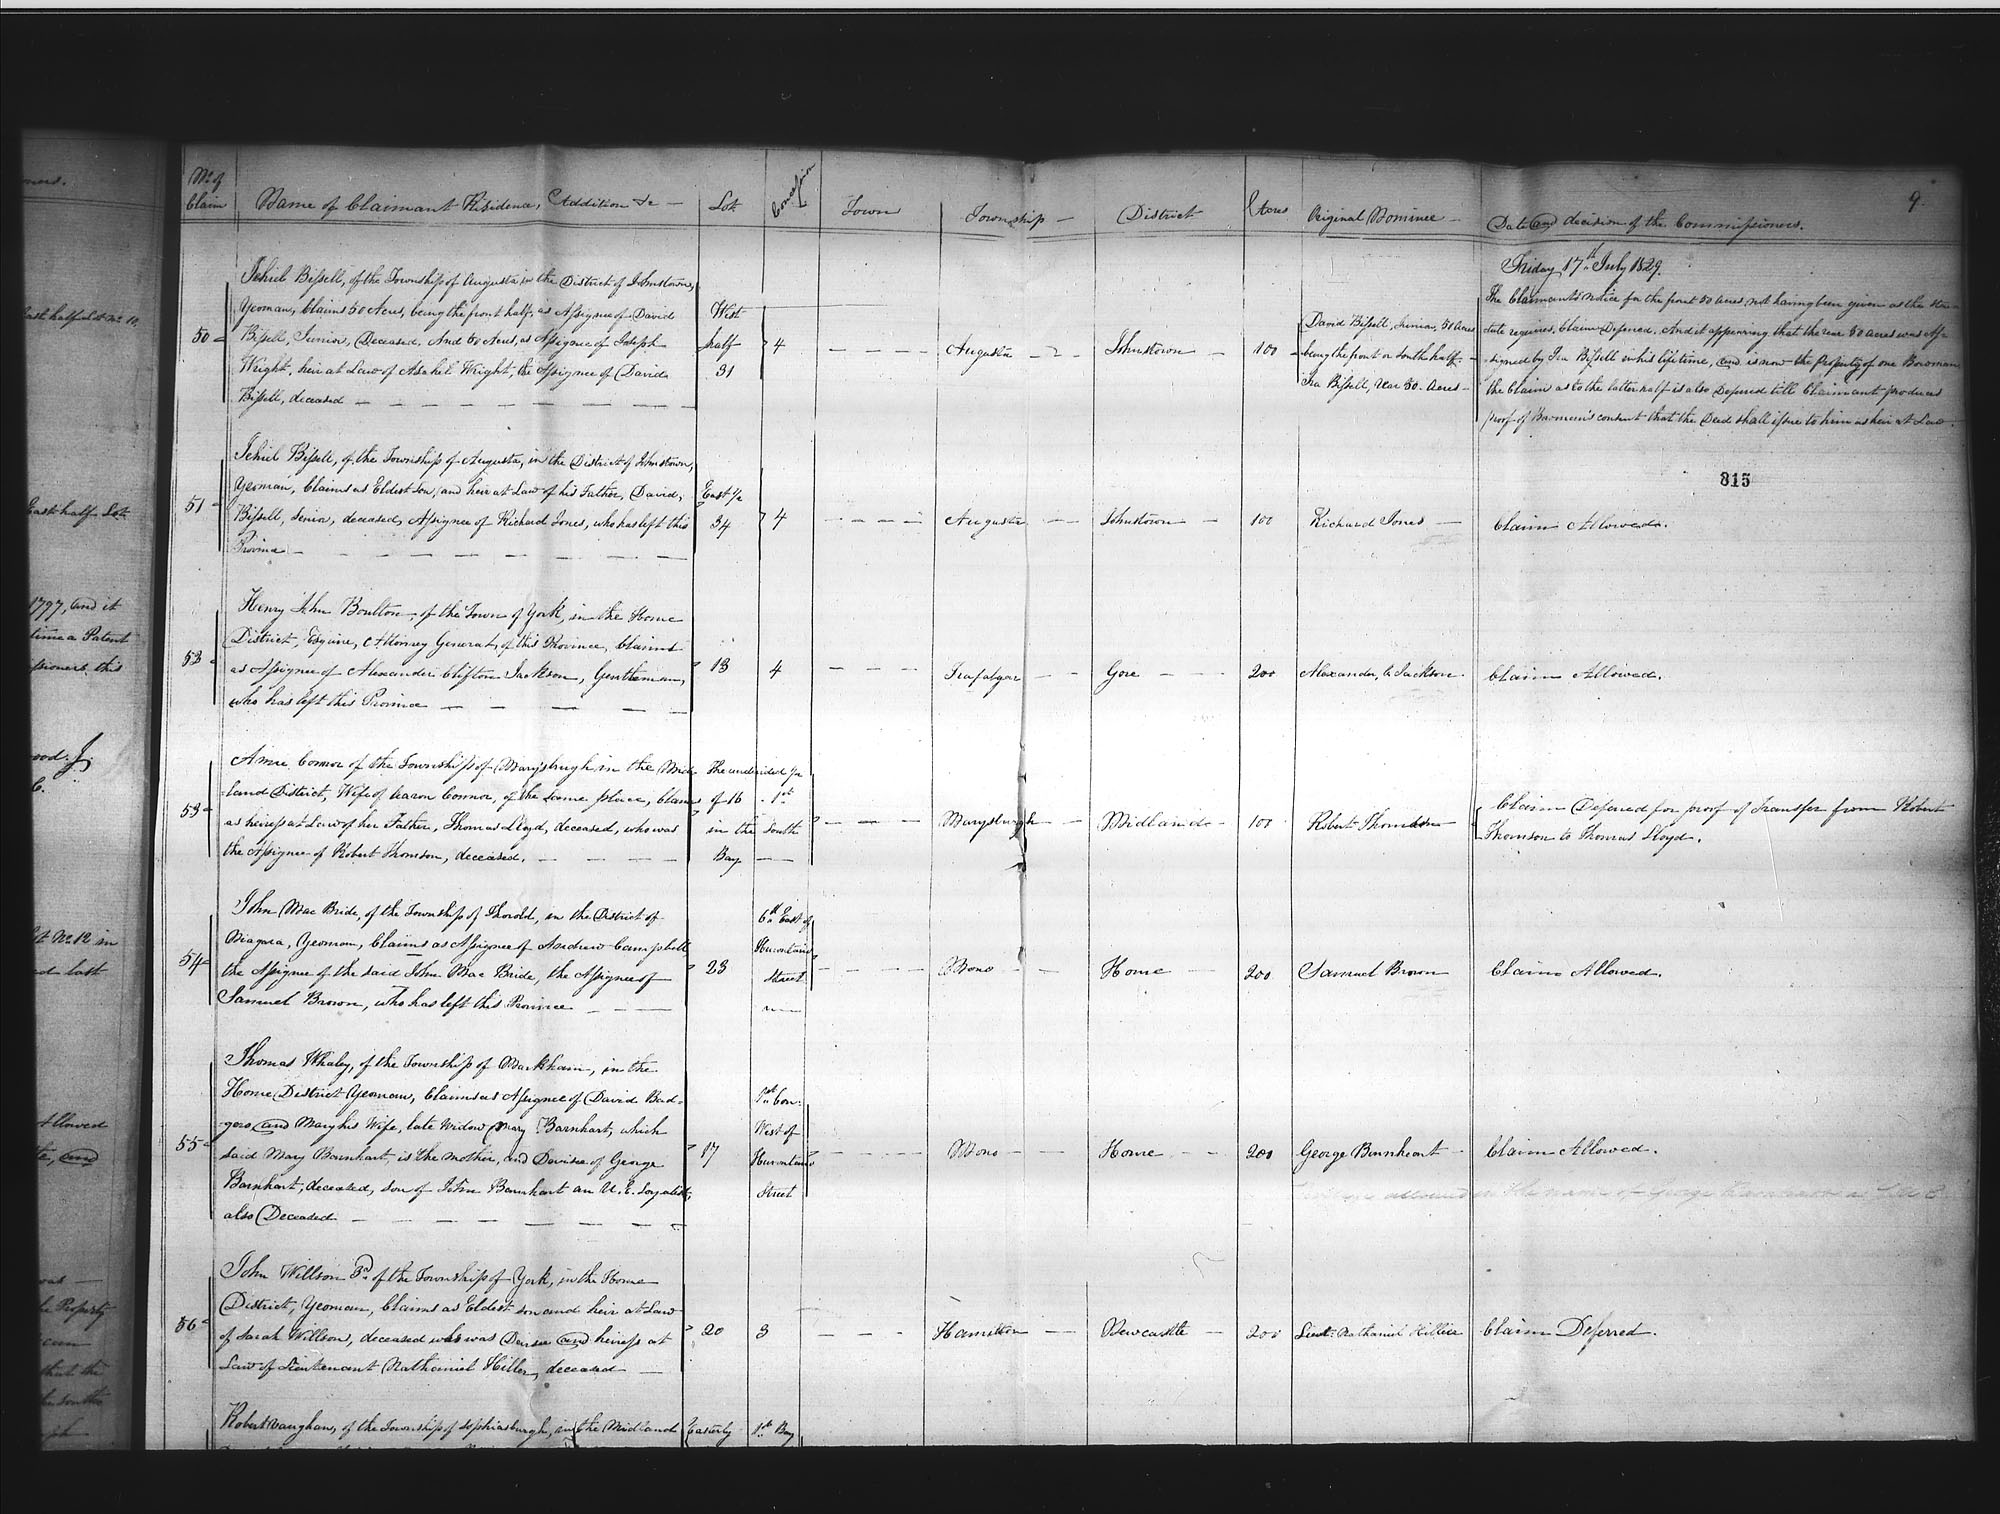 9.
No. of Claim
Name of Claimant Residence, Addition &c —
Lot
Concession
Town
Township —
District
Acres
Original Nominee —
Date and decision of the Commissioners.
Friday 17th July 1829.
50
Jehiel Bissell, of the Township of Augusta in the District of Johnstown,
Yeoman, Claims 50 Acres, being the front half, as Assignee of David
Bissell, Junior, Deceased, And 50 Acres, as Assignee of Joseph
Wright, heir at Law of Asahel Wright, the Assignee of David
Bissell, deceased —
West
half
31
4
Augusta
Johnstown
100
David Bissell, Junior, 50 Acres
being the front or South half —
Ira Bissell, Rear 50 Acres —
The Claimant's notice for the front 50 acres, not having been given as the Sta-
tute requires, Claim Deferred. And it appearing that the rear 50 acres was As-
signed by Ira Bissell in his lifetime, and is now the Property of one Bowman
the Claim as to the latter half is also Deferred till Claimant produces
proof of Bowman's consent that the Deed shall issue to him as heir at Law.
815
51
Jehiel Bissell, of the Township of Augusta, in the District of Johnstown,
Yeoman, Claims as Eldest Son, and heir at Law of his Father, David,
Bissell, Senior, deceased, Assignee of Richard Jones, who has left this
Province —
East ½
34
4
Augusta
Johnstown
100
Richard Jones —
Claim Allowed.
52
Henry John Boulton, of the Town of York, in the Home
District, Esquire, Attorney General, of this Province, Claims
as Assignee of Alexander Clifton Jackson, Gentleman,
who has left this Province
13
4
Trafalgar
Gore
200
Alexander C. Jackson
Claim Allowed.
53
Anne Connor of the Township of Marysburgh in the Mid-
land District, Wife of Aaron Connor, of the same place, Claims
as heiress at Law of her Father, Thomas Lloyd, deceased, who was
the Assignee of Robert Thomson, deceased.
The undivided ½
of 16
in the
Bay
1st
South
Marysburgh
Midland
100
Robert Thomson
Claim Deferred for proof of Transfer from Robert
Thomson to Thomas Lloyd.
54
John Mac Bride, of the Township of Thorold, in the District of
Niagara, Yeoman, Claims as Assignee of Andrew Campbell
the Assignee of the said John Mac Bride, the Assignee of
Samuel Brown, who has left this Province
23
6th East of
Hurontario
Street
Mono
Home
200
Samuel Brown
Claim Allowed.
55
Thomas Whaley, of the Township of Markham, in the
Home District Yeoman, Claims as Assignee of David Bad-
gero, and Mary his Wife, late Widow Mary Barnhart, which
said Mary Barnhart, is the mother, and Devisee of George
Barnhart, deceased, son of John Barnhart an U. E. Loyalist,
also Deceased
17
1st Con:
West of
Hurontario
Street
Mono
Home
200
George Barnheart
Claim Allowed.
allowed in the name of George
56
John Willson 3d of the Township of York, in the Home
District, Yeoman, Claims as Eldest son and heir at Law
of Sarah Willson, deceased who was Devisee and heiress at
Law of Lieutenant Nathaniel Hiller, deceased
20
3
Hamilton
Newcastle
200
Lieut: Nathaniel Hillier
Claim Deferred.
Robert Vaughan, of the Township of Sophiasburgh, in the Midland
Easterly
1st Bay
East half Lot No. 10,
East half Lot
1797, and it
time a Patent
this
Lot No. 12 in
last
Allowed
and
was —
the Property
that the